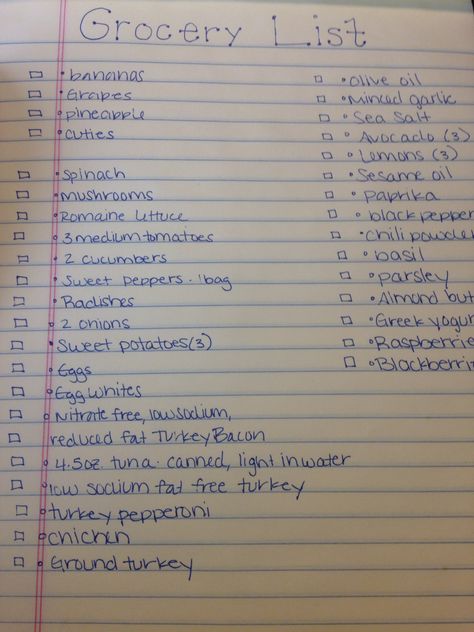 Grocery List
• bananas
• Grapes
• pineapple
• cuties
• Spinach
• mushrooms
• Romaine lettuce
• 3 medium tomatoes
• 2 cucumbers
• Sweet peppers - 1 bag
• Radishes
• 2 onions
• Sweet potatoes (3)
• Eggs
• Egg whites
• Nitrate free, low sodium,
reduced fat Turkey Bacon
• 4.5oz. tuna - canned, light in water
• low sodium fat free turkey
• turkey pepperoni
• chichen
• Ground turkey
• olive oil
• Minced garlic
• Sea Salt
• Avocado (3)
• Lemons (3)
• Sesame oil
• paprika
• black pepper
• chili powder
• basil
• parsley
• Almond but
• Greek yogur
• Raspberrie
• Blackberri